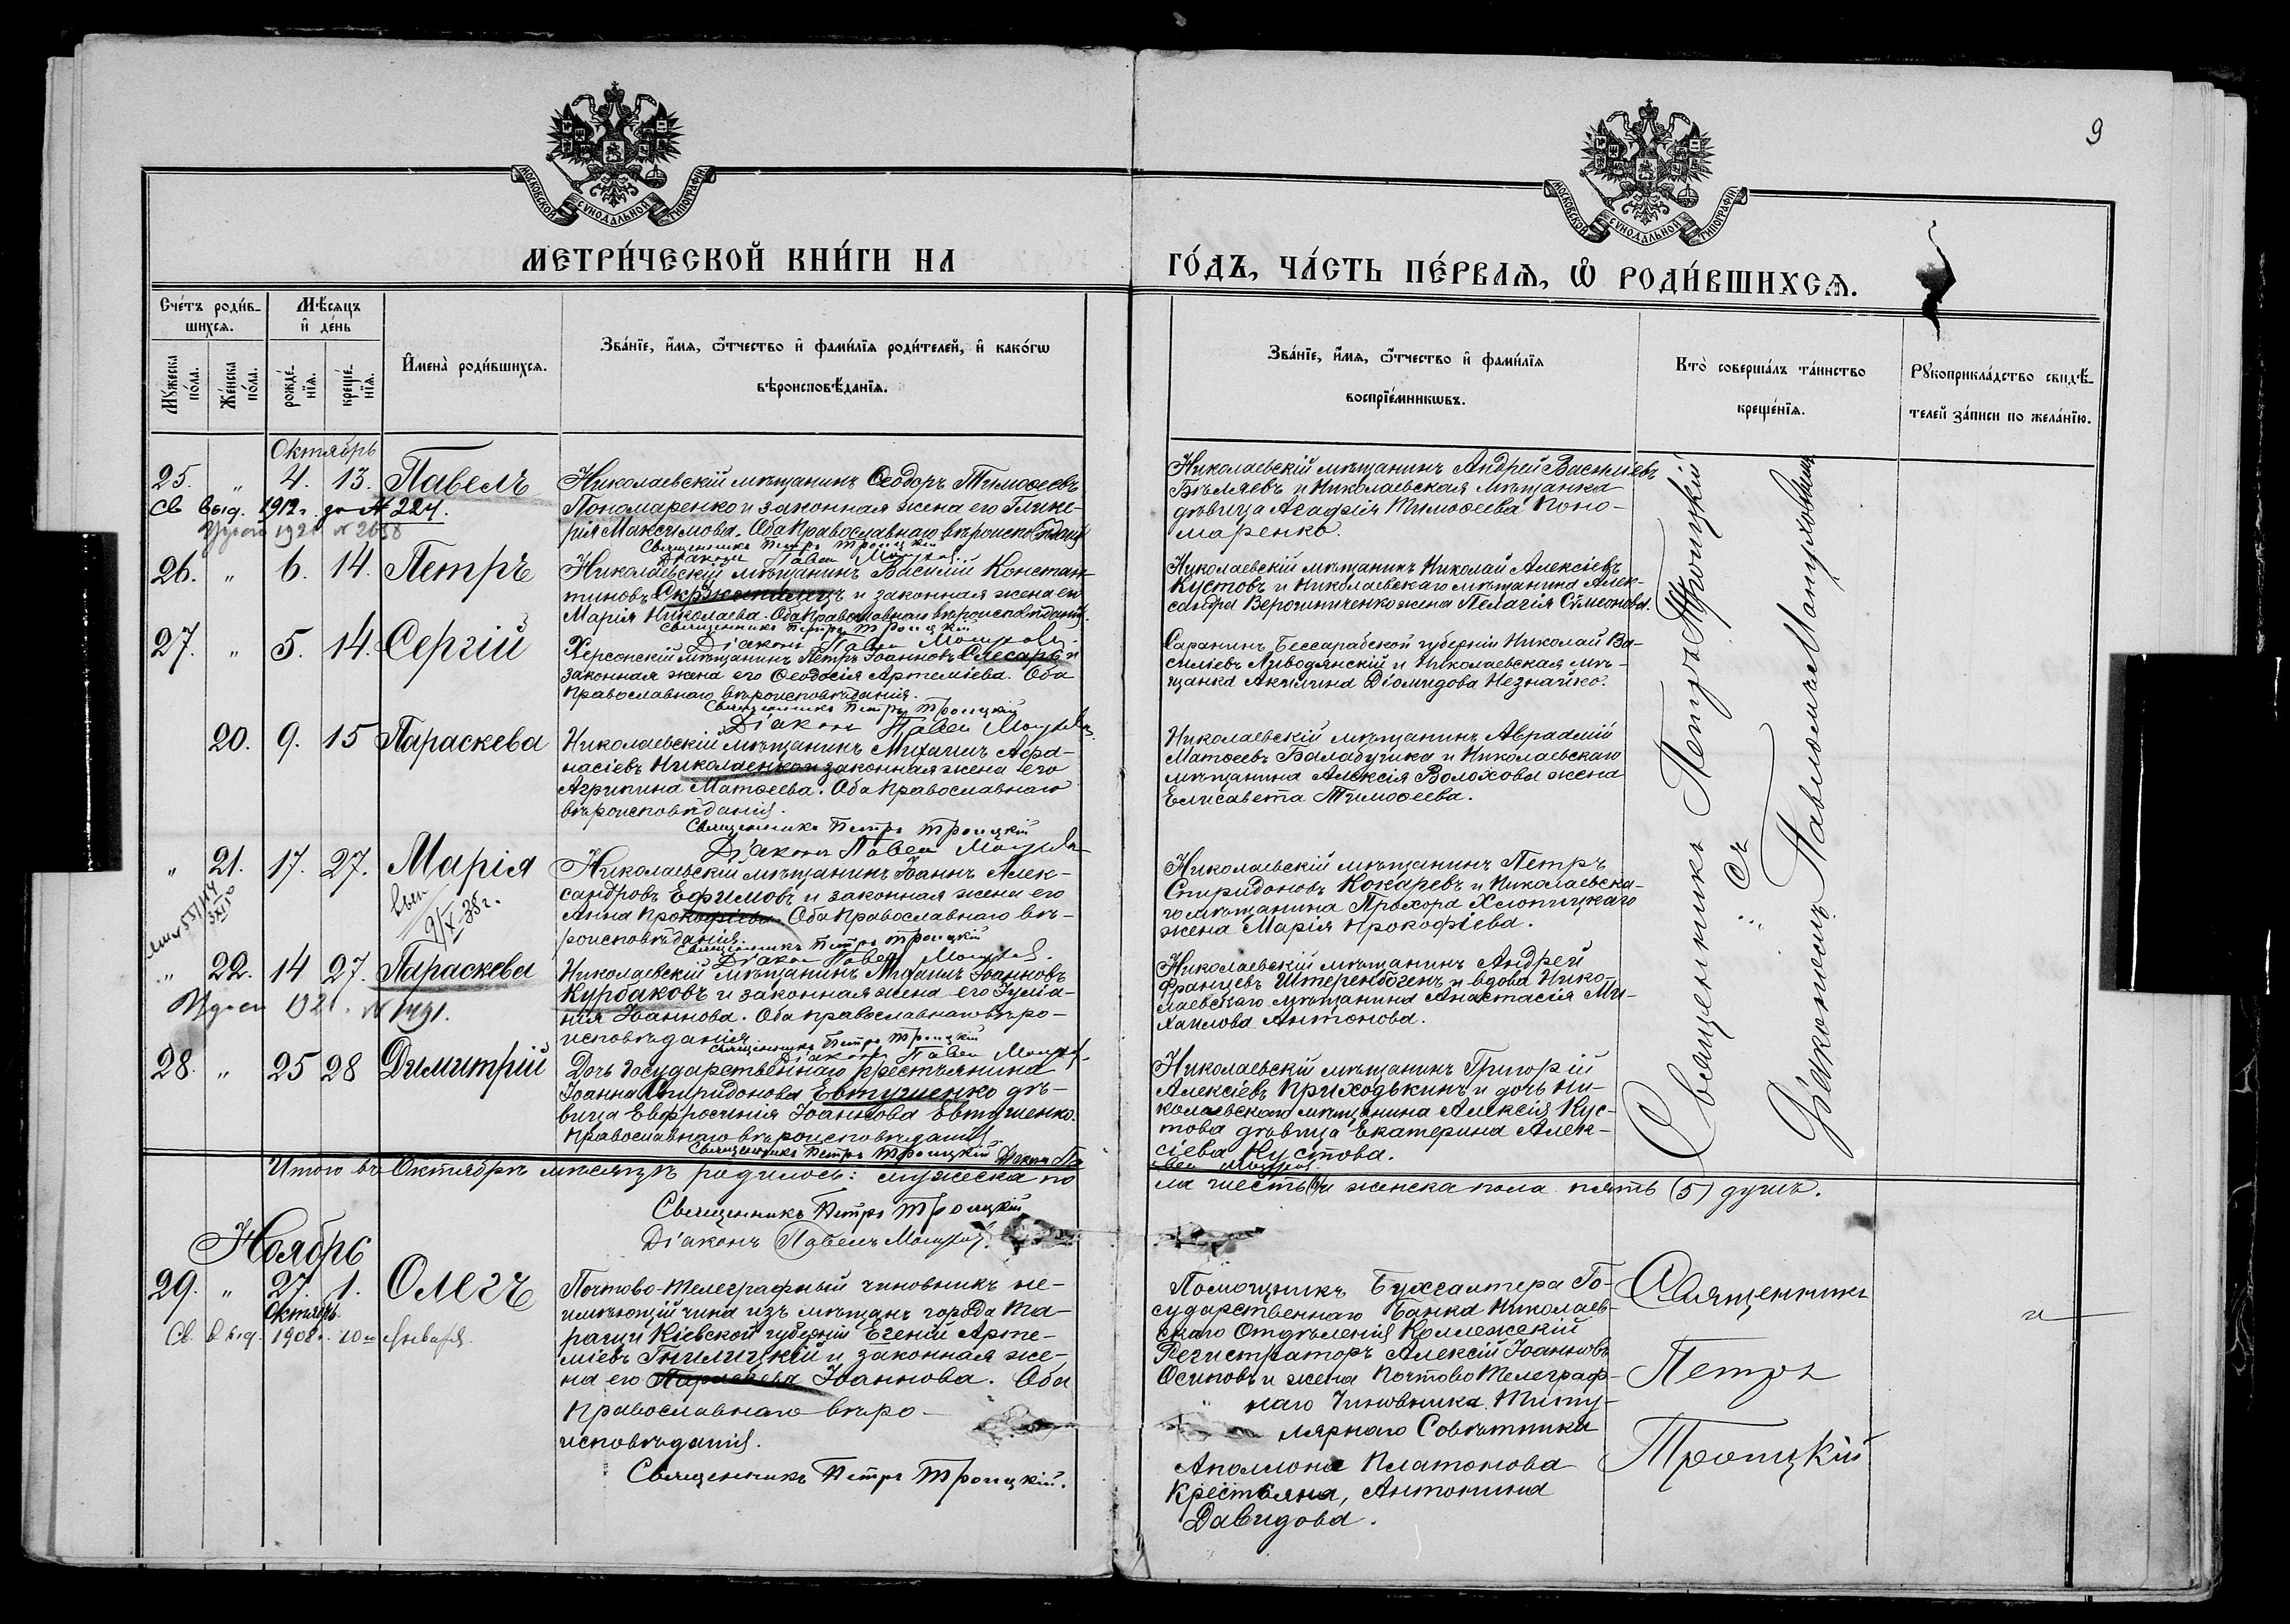 9
МОСКОВСКОЙ СУНОДАЛЬНОЙ ТИПОГРАФІИ
МОСКОВСКОЙ СУНОДАЛЬНОЙ ТИПОГРАФІИ
МЕТРИ́ЧЕСКОЙ КНИ́ГИ НА
ГО́ДЪ, ЧА́СТЬ ПЕ́РВАѦ, Ѡ РОДИ́ВШИХСѦ.
Сче́тъ роди́в-
шихсѧ.
Мѣ́сѧцъ
и де́нь
Мꙋ́жеска по́ла.
Же́нска по́ла.
рожде́-нїѧ.
креще́-нїѧ.
Имена̀ роди́вшихсѧ.
Зва́нїе, и́мѧ, ѻ́тчество и фами́лїѧ роди́телей, и како́гѡ
вѣроисповѣ́данїѧ.
Зва́нїе, и́мѧ, ѻ́тчество и фами́лїѧ
воспрїе́мникѡвъ.
Кто̀ соверша́лъ та́инство
креще́нїѧ.
Рꙋкоприкла́дство свидѣ́-
телей за́писи по жела́нїю.
Октябрь
25. „ 4. 13. Павелъ
Св выд. 1912 г. за № 224.
192 № 2658
Николаевскій мѣщанинъ Ѳеодоръ Тимоѳеевъ
Пономаренко и законная жена его Глике-
рія Максимова. Оба Православнаго вѣроисповѣданія
Священникъ Петръ Троицкій
Діаконъ Павелъ
Николаевскій мѣщанинъ Андрей Васильевъ
Бѣляевъ и Николаевская Мѣщанка
дѣвица Агафія Тимоѳеева Поно-
маренко.
26. „ 6. 14. Петръ
Николаевскій мѣщанинъ Василій Констан-
тиновъ и законная жена его
Марія Николаева. Оба Православнаго вѣроисповѣданія.
Священникъ Петръ Троицкій
Діаконъ Павелъ
Николаевскій мѣщанинъ Николай Алексіевъ
Кустовъ и Николаевскаго мѣщанина Алек-
сандра жена Пелагія Сѵмеонова.
27. „ 5. 14. Сергій
Херсонскій мѣщанинъ Петръ Іоанновъ Слесарь и
законная жена его Ѳеодосія Артеміева. Оба
православнаго вѣроисповѣданія.
Священникъ Петръ Троицкій
Діаконъ Павелъ
Бессарабской губерніи Николай Ва-
силіевъ Ливодянскій и Николаевская мѣ-
щанка Акилина Діомидова Незнайко.
20. 9. 15 Параскева
Николаевскій мѣщанинъ Михаилъ Аѳа-
насіевъ Николаенко и законная жена его
Агрипина Матѳеева. Оба Православнаго
вѣроисповѣданія.
Священникъ Петръ Троицкій
Діаконъ Павелъ
Николаевскій мѣщанинъ Авраамій
Матѳеевъ и Николаевскаго
мѣщанина Алексія Волохова жена
Елисавета Тимоѳеева.
„ 21. 17. 27. Марія
9/X-35г.
Николаевскій мѣщанинъ Іоаннъ Алек-
сандровъ Ефимовъ и законная жена его
Анна Прокофіева. Оба Православнаго вѣ-
роисповѣданія.
Священникъ Петръ Троицкій
Діаконъ Павелъ
Николаевскій мѣщанинъ Петръ
Спиридоновъ Кокаревъ и Николаевска-
го мѣщанина Прохора Хлопицкаго
жена Марія Прокофіева.
„ 22. 14 27. Параскева
№ 1491.
Николаевскій мѣщанинъ Михаилъ Іоанновъ
Курбаковъ и законная жена его Іуліа-
нія Іоаннова. Оба православнаго вѣро-
исповѣданія
Священникъ Петръ Троицкій
Діаконъ Павелъ
Николаевскій мѣщанинъ Андрей
Францевъ Штеренбогенъ и вдова Нико-
лаевскаго мѣщанина Анастасія Ми-
хаилова Антонова.
28. „ 25 28 Димитрій
Дочь Государственнаго крестьянина
Іоанна Спиридонова Евтушенко дѣ-
вица Евфросинія Іоаннова Евтушенко.
Православнаго вѣроисповѣданія.
Священникъ Петръ Троицкій Діаконъ Па-
Николаевскій мѣщанинъ Григорій
Алексіевъ Приходькинъ и дочь Ни-
колаевскаго мѣщанина Алексія Кус-
това дѣвица Екатерина Алек-
сіева Кустова.
Священникъ Петръ Троицкій
„ Съ „
Діакономъ Павломъ
Итого въ Октябрѣ мѣсяцѣ родилось: мужеска по-
ла шесть и женска пола пять (5) душъ.
Священникъ Петръ Троицкій
Діаконъ Павелъ
Ноябрь
29. „ 27. 1. Олегъ
Октябрь
Св. выд. 1908 г. 10 Января.
Почтово-Телеграфный чиновникъ не-
имѣющій чина изъ мѣщанъ города Та-
ращи Кіевской губерніи Евгеній Арте-
міевъ Гнилицкій и законная же-
на его Параскева Іоаннова. Оба
православнаго вѣро-
исповѣданія.
Священникъ Петръ Троицкій.
Помощникъ Бухгалтера Го-
сударственнаго Банка Николаев-
скаго Отдѣленія Коллежскій
Регистраторъ Алексій Іоанновъ
Осиповъ и жена Почтово Телеграф-
наго Чиновника Титу-
лярнаго Совѣтника
Аполлона Платонова
Крестьяна, Антонина
Давидова.
Священникъ
Петръ
Троицкій